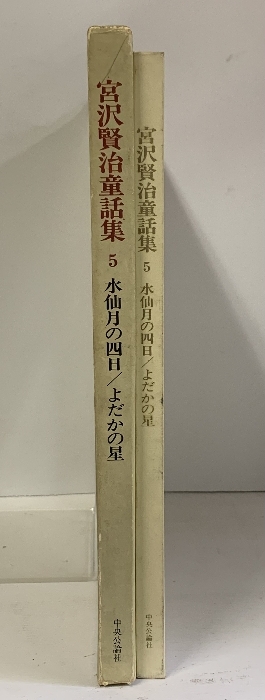 宮沢賢治童話集 5 水仙月の四日/よだかの星 中央公論社
宮沢賢治童話集 5 水仙月の四日/よだかの星 中央公論社